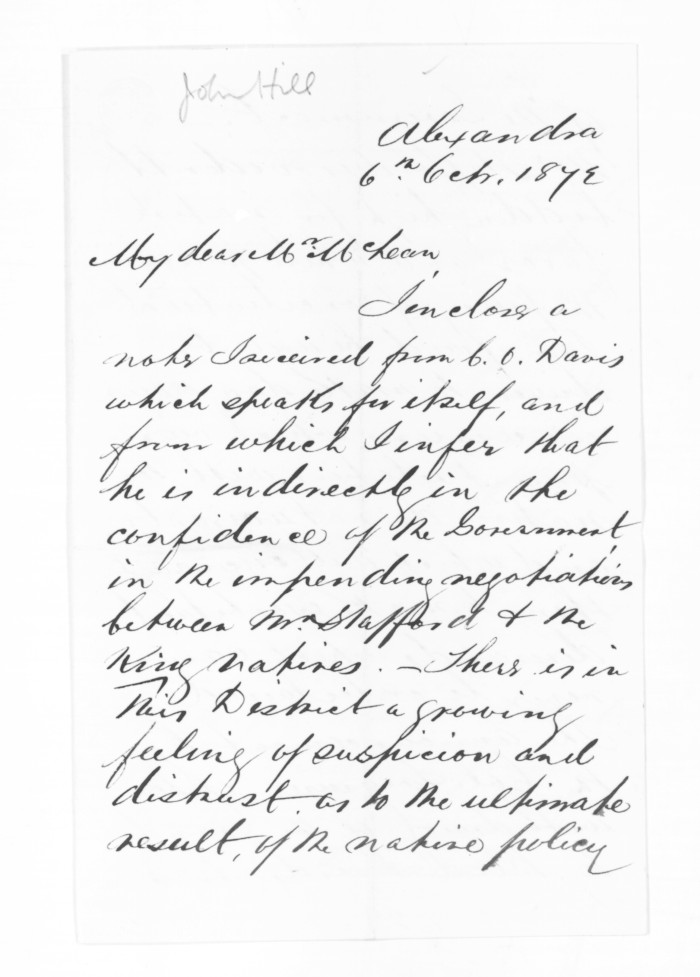 John Hill
Alexandra
6th Octr. 1872
My dear Mr. McLean,
I inclose a
note I received from C. O. Davis
which speaks for itself, and
from which I infer that
he is indirectly in the
confidence of the Government,
in the impending negotiations
between Mr Stafford & the
King natives. - There is in
this District a growing
feeling of suspicion and
distrust as to the ultimate
result, of the native policy